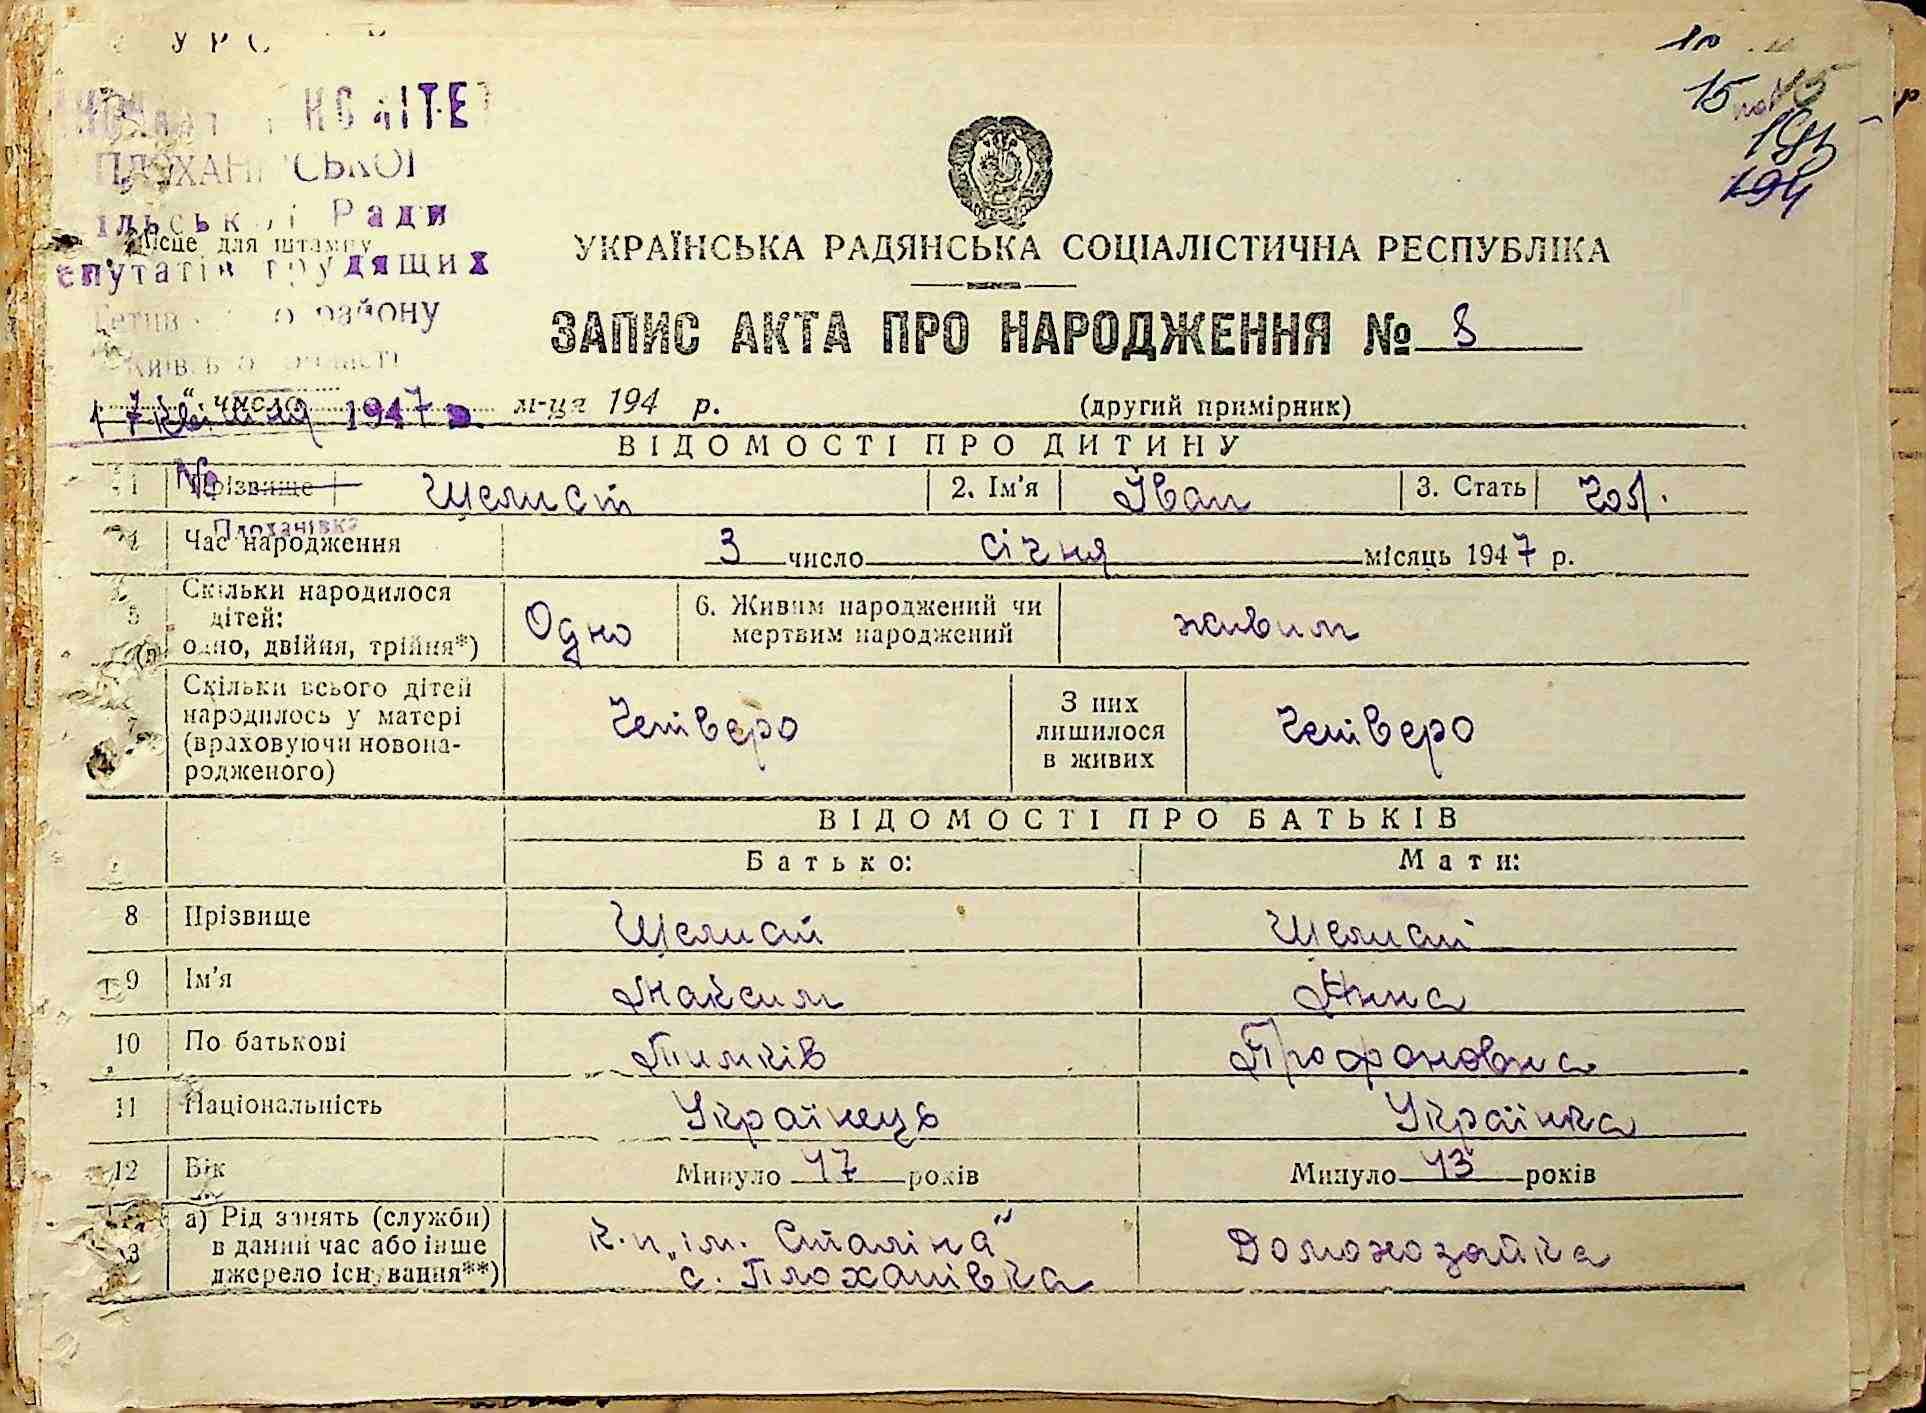 У Р С
КОМІТЕТ
ПЛОХАНІВСЬКОЇ
ільської Ради
Місце для штампу
епутатів трудящих
району
Київсько області
УКРАЇНСЬКА РАДЯНСЬКА СОЦІАЛІСТИЧНА РЕСПУБЛІКА
ЗАПИС АКТА ПРО НАРОДЖЕННЯ № 8
число м-ця 194 р. (другий примірник)
17 квітня 1947
ВІДОМОСТІ ПРО ДИТИНУ
1 Прізвище Щелист 2. Ім'я Іван 3. Стать Чол.
№
Плоханівка
4 Час народження 3 число січня місяць 1947 р.
5 Скільки народилося дітей: одно, двійня, трійня*) Одно 6. Живим народжений чи мертвим народжений живим
7 Скільки всього дітей народилось у матері (враховуючи новонародженого) Четверо З них лишилося в живих Четверо
ВІДОМОСТІ ПРО БАТЬКІВ
Батько: Мати:
8 Прізвище Щелист Щелист
9 Ім'я Максим Анна
10 По батькові Тимків Трофоновна
11 Національність Українець Українка
12 Вік Минуло 47 років Минуло 43 років
13 а) Рід занять (служби) в даний час або інше джерело існування**) к.п „ім. Сталіна" с. Плоханівка Домохозайка
15
194